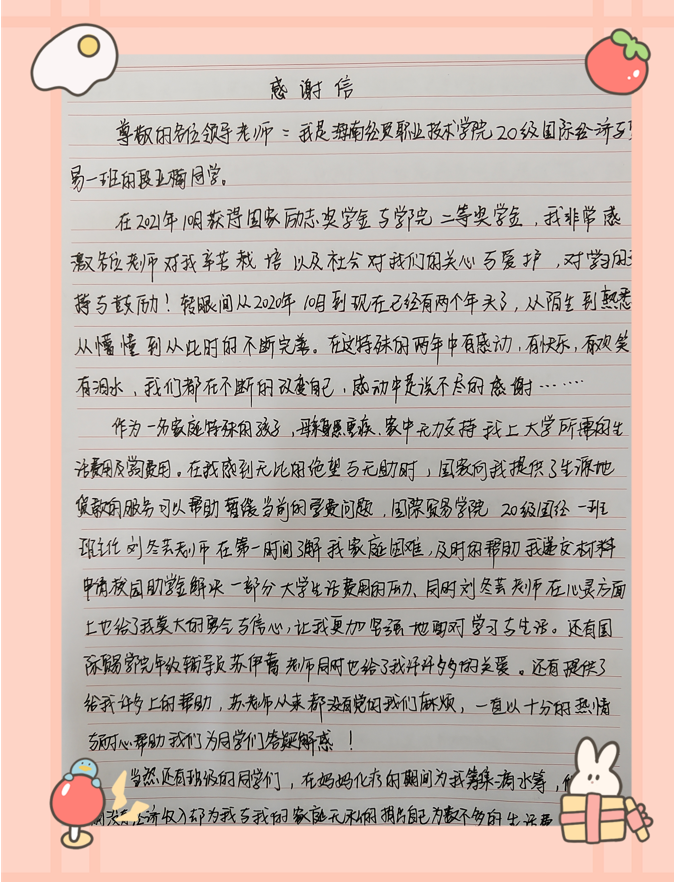 感谢信
尊敬的各位领导老师：我是海南经贸职业技术学院20级国际经济与
易一班的段亚楠同学。
在2021年10月获得国家励志奖学金与学院二等奖学金，我非常感
激各位老师对我辛苦栽培以及社会对我们的关心与爱护，对学习的
持与鼓励！转眼间从2020年10月到现在已经有两个年头了，从陌生到熟悉
从懵懂到从此时的不断完善。在这特殊的两年中有感动，有快乐，有欢笑
有泪水，我们都在不断的改变自己，感动中是说不尽的感谢……
作为一名家庭特殊的孩子，母亲患重疾、家中无力支持我上大学所需的生
活费用及学费用。在我感到无比的绝望与无助时，国家向我提供了生源地
贷款的服务可以帮助暂缓当前的学费问题，国际贸易学院20级国经一班
班主任刘冬芸老师在第一时间了解我家庭困难，及时的帮助我递交材料
申请校园助学金解决一部分大学生活费用的压力、同时刘冬芸老师在心灵方面
上也给了我莫大的勇气与信心，让我更加坚强地面对学习与生活。还有国
际贸易学院年级辅导员苏伊蕾老师同时也给了我许许多多的关爱。还有提供了
给我许多上的帮助，苏老师从来都没有觉的我们麻烦，一直以十分的热情
与耐心帮助我们为同学们答疑解惑！
当然还有班级的同学们，在妈妈化疗的期间为我筹集滴水筹，
经济收入却为我与我的家庭无私的捐出自己为数不多的生活费